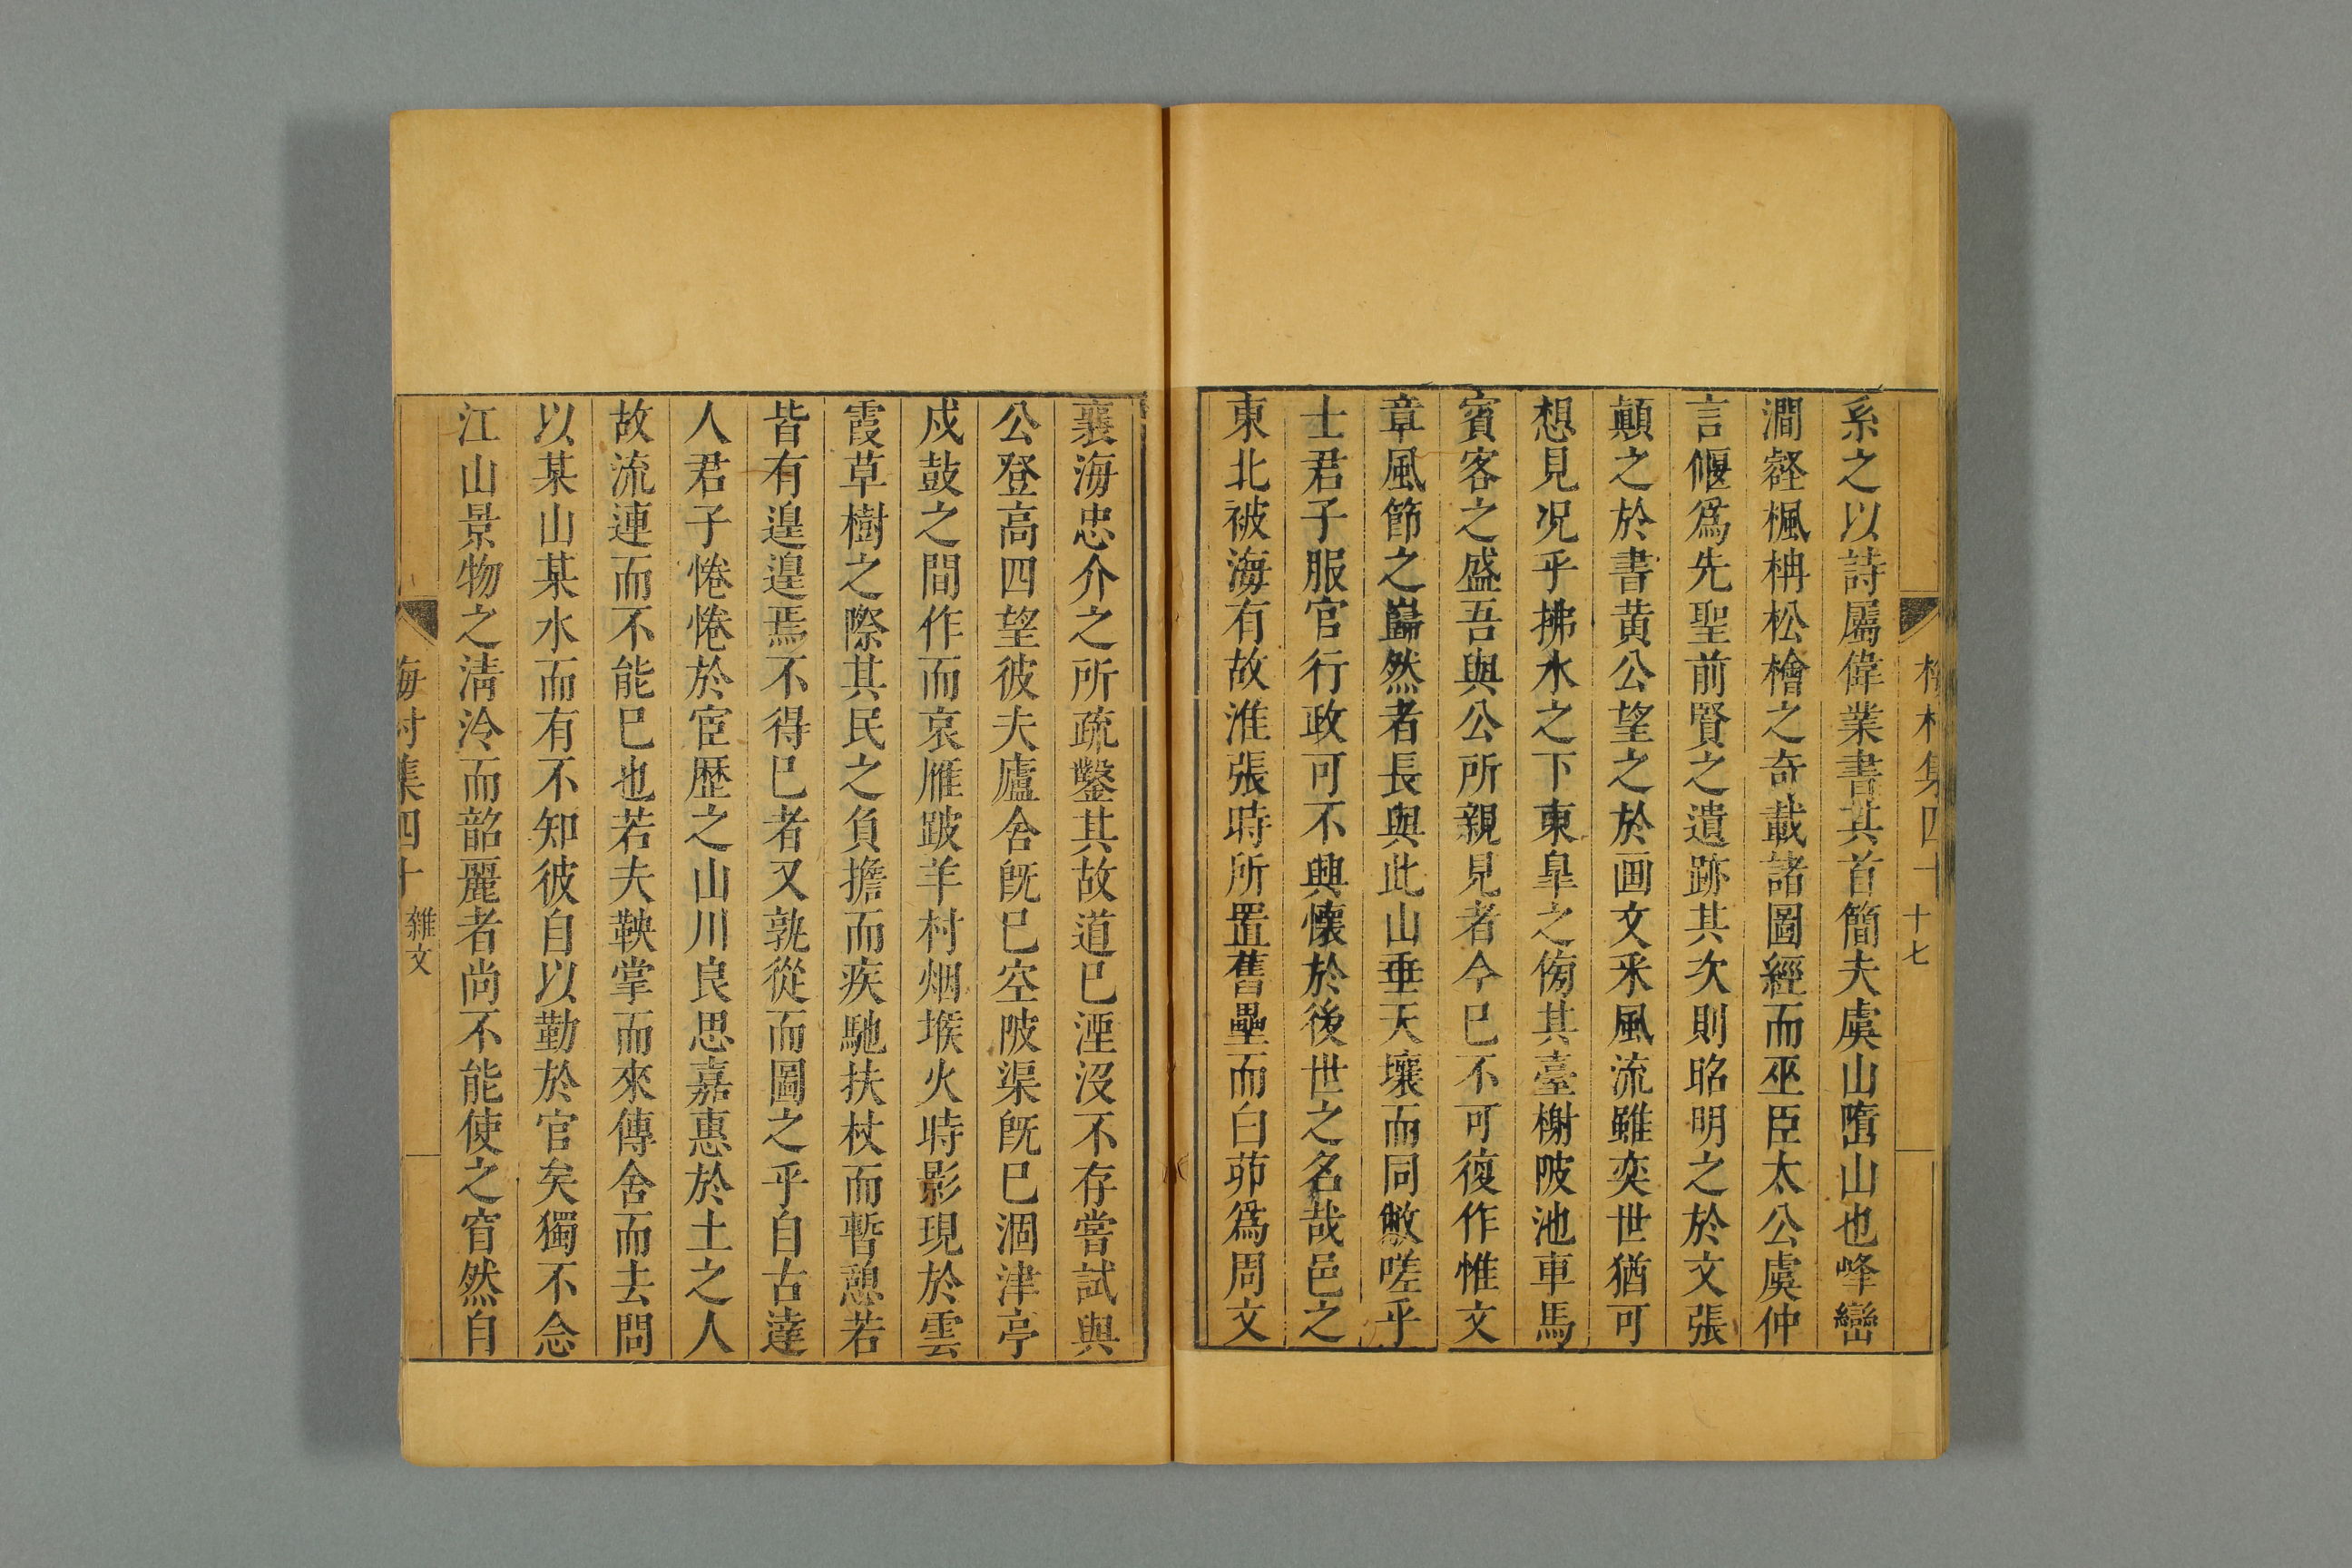 梅村集四十 十七
系之以詩屬偉業書其首簡夫虞山嶞山也峰巒
澗壑楓柟松檜之奇載諸圖經而巫臣太公虞仲
言偃爲先聖前賢之遺跡其次則昭明之於文張
顛之於書黄公望之於画文釆風流雖奕世猶可
想見况乎拂水之下東臯之側其臺榭陂池車馬
賓客之盛吾與公所親見者今已不可復作惟文
章風節之巋然者長與此山垂天壤而同敝嗟乎
士君子服官行政可不興懐於後世之名哉邑之
東北被海有故淮張時所置舊壘而白茆爲周文
襄海忠介之所疏鑿其故道已湮沒不存嘗試與
公登高四望彼夫廬舍旣已空陂渠旣已涸津亭
戍鼓之間作而哀雁跛羊村烟堠火時影現於雲
霞草樹之際其民之負擔而疾馳扶杖而暫憩若
皆有遑遑焉不得已者又孰從而圖之乎自古達
人君子惓惓於宦歴之山川良思嘉惠於土之人
故流連而不能已也若夫鞅掌而來傳舍而去問
以某山某水而有不知彼自以勤於官矣獨不念
江山景物之淸泠而韶麗者尚不能使之窅然自
梅村集四十 雜文